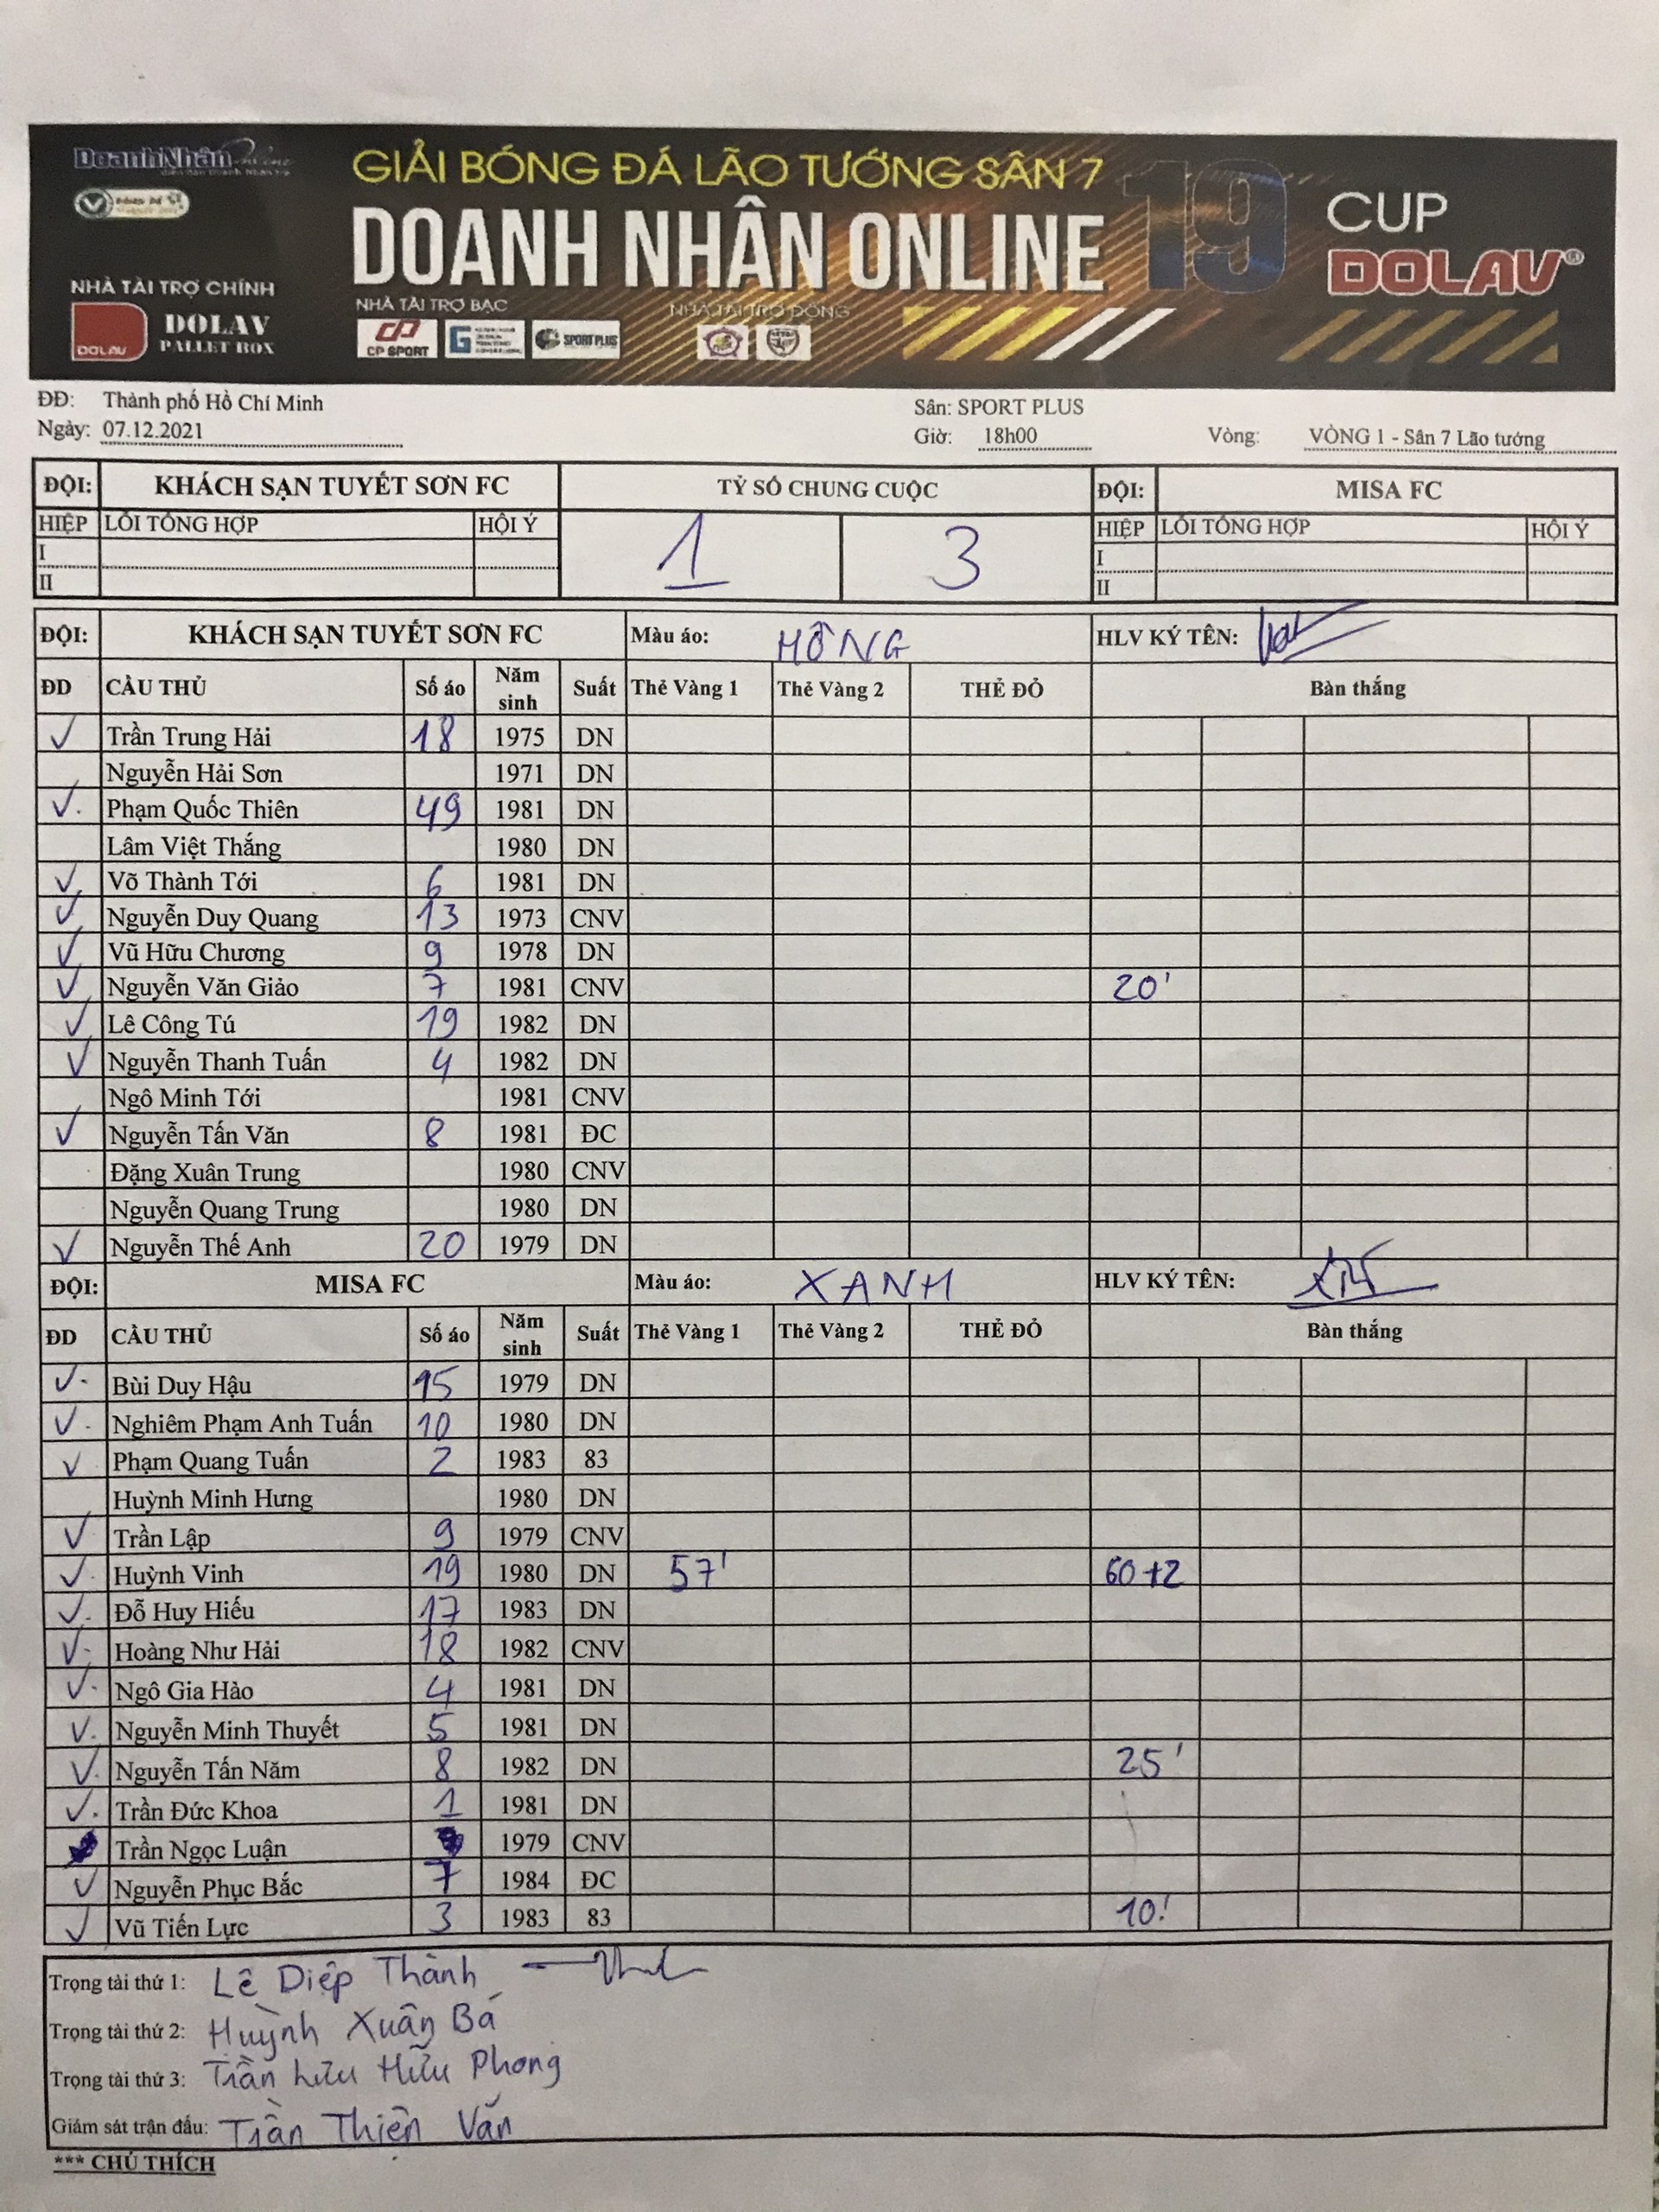 DoanhNhân online
GIẢI BÓNG ĐÁ LÃO TƯỚNG SÂN 7
DOANH NHÂN ONLINE 19
CUP
DOLAV®
NHÀ TÀI TRỢ CHÍNH
DOLAV
DOLAV
PALLET BOX
NHÀ TÀI TRỢ BẠC
NHÀ TÀI TRỢ ĐỒNG
CP SPORT
SPORT PLUS
ĐĐ: Thành phố Hồ Chí Minh Sân: SPORT PLUS
Ngày: 07.12.2021 Giờ: 18h00 Vòng: VÒNG 1 - Sân 7 Lão tướng
ĐỘI: KHÁCH SẠN TUYẾT SƠN FC TỶ SỐ CHUNG CUỘC ĐỘI: MISA FC
HIỆP LỖI TỔNG HỢP HỘI Ý 1 3 HIỆP LỖI TỔNG HỢP HỘI Ý
I I
II II
ĐỘI: KHÁCH SẠN TUYẾT SƠN FC Màu áo: HỒNG HLV KÝ TÊN:
ĐD CẦU THỦ Số áo Năm sinh Suất Thẻ Vàng 1 Thẻ Vàng 2 THẺ ĐỎ Bàn thắng
✓ Trần Trung Hải 18 1975 DN
Nguyễn Hải Sơn 1971 DN
✓ Phạm Quốc Thiên 49 1981 DN
Lâm Việt Thắng 1980 DN
✓ Võ Thành Tới 6 1981 DN
✓ Nguyễn Duy Quang 13 1973 CNV
✓ Vũ Hữu Chương 9 1978 DN
✓ Nguyễn Văn Giảo 7 1981 CNV 20'
✓ Lê Công Tú 19 1982 DN
✓ Nguyễn Thanh Tuấn 4 1982 DN
Ngô Minh Tới 1981 CNV
✓ Nguyễn Tấn Văn 8 1981 ĐC
Đặng Xuân Trung 1980 CNV
Nguyễn Quang Trung 1980 DN
✓ Nguyễn Thế Anh 20 1979 DN
ĐỘI: MISA FC Màu áo: XANH HLV KÝ TÊN:
ĐD CẦU THỦ Số áo Năm sinh Suất Thẻ Vàng 1 Thẻ Vàng 2 THẺ ĐỎ Bàn thắng
✓ Bùi Duy Hậu 15 1979 DN
✓ Nghiêm Phạm Anh Tuấn 10 1980 DN
✓ Phạm Quang Tuấn 2 1983 83
Huỳnh Minh Hưng 1980 DN
✓ Trần Lập 9 1979 CNV
✓ Huỳnh Vinh 19 1980 DN 57' 60+2
✓ Đỗ Huy Hiếu 17 1983 DN
✓ Hoàng Như Hải 18 1982 CNV
✓ Ngô Gia Hào 4 1981 DN
✓ Nguyễn Minh Thuyết 5 1981 DN
✓ Nguyễn Tấn Năm 8 1982 DN 25'
✓ Trần Đức Khoa 1 1981 DN
Trần Ngọc Luận 1979 CNV
✓ Nguyễn Phục Bắc 7 1984 ĐC
✓ Vũ Tiến Lực 3 1983 83 10'
Trọng tài thứ 1: Lê Diệp Thành
Trọng tài thứ 2: Huỳnh Xuân Bá
Trọng tài thứ 3: Trần Lưu Hữu Phong
Giám sát trận đấu: Trần Thiện Văn
*** CHÚ THÍCH